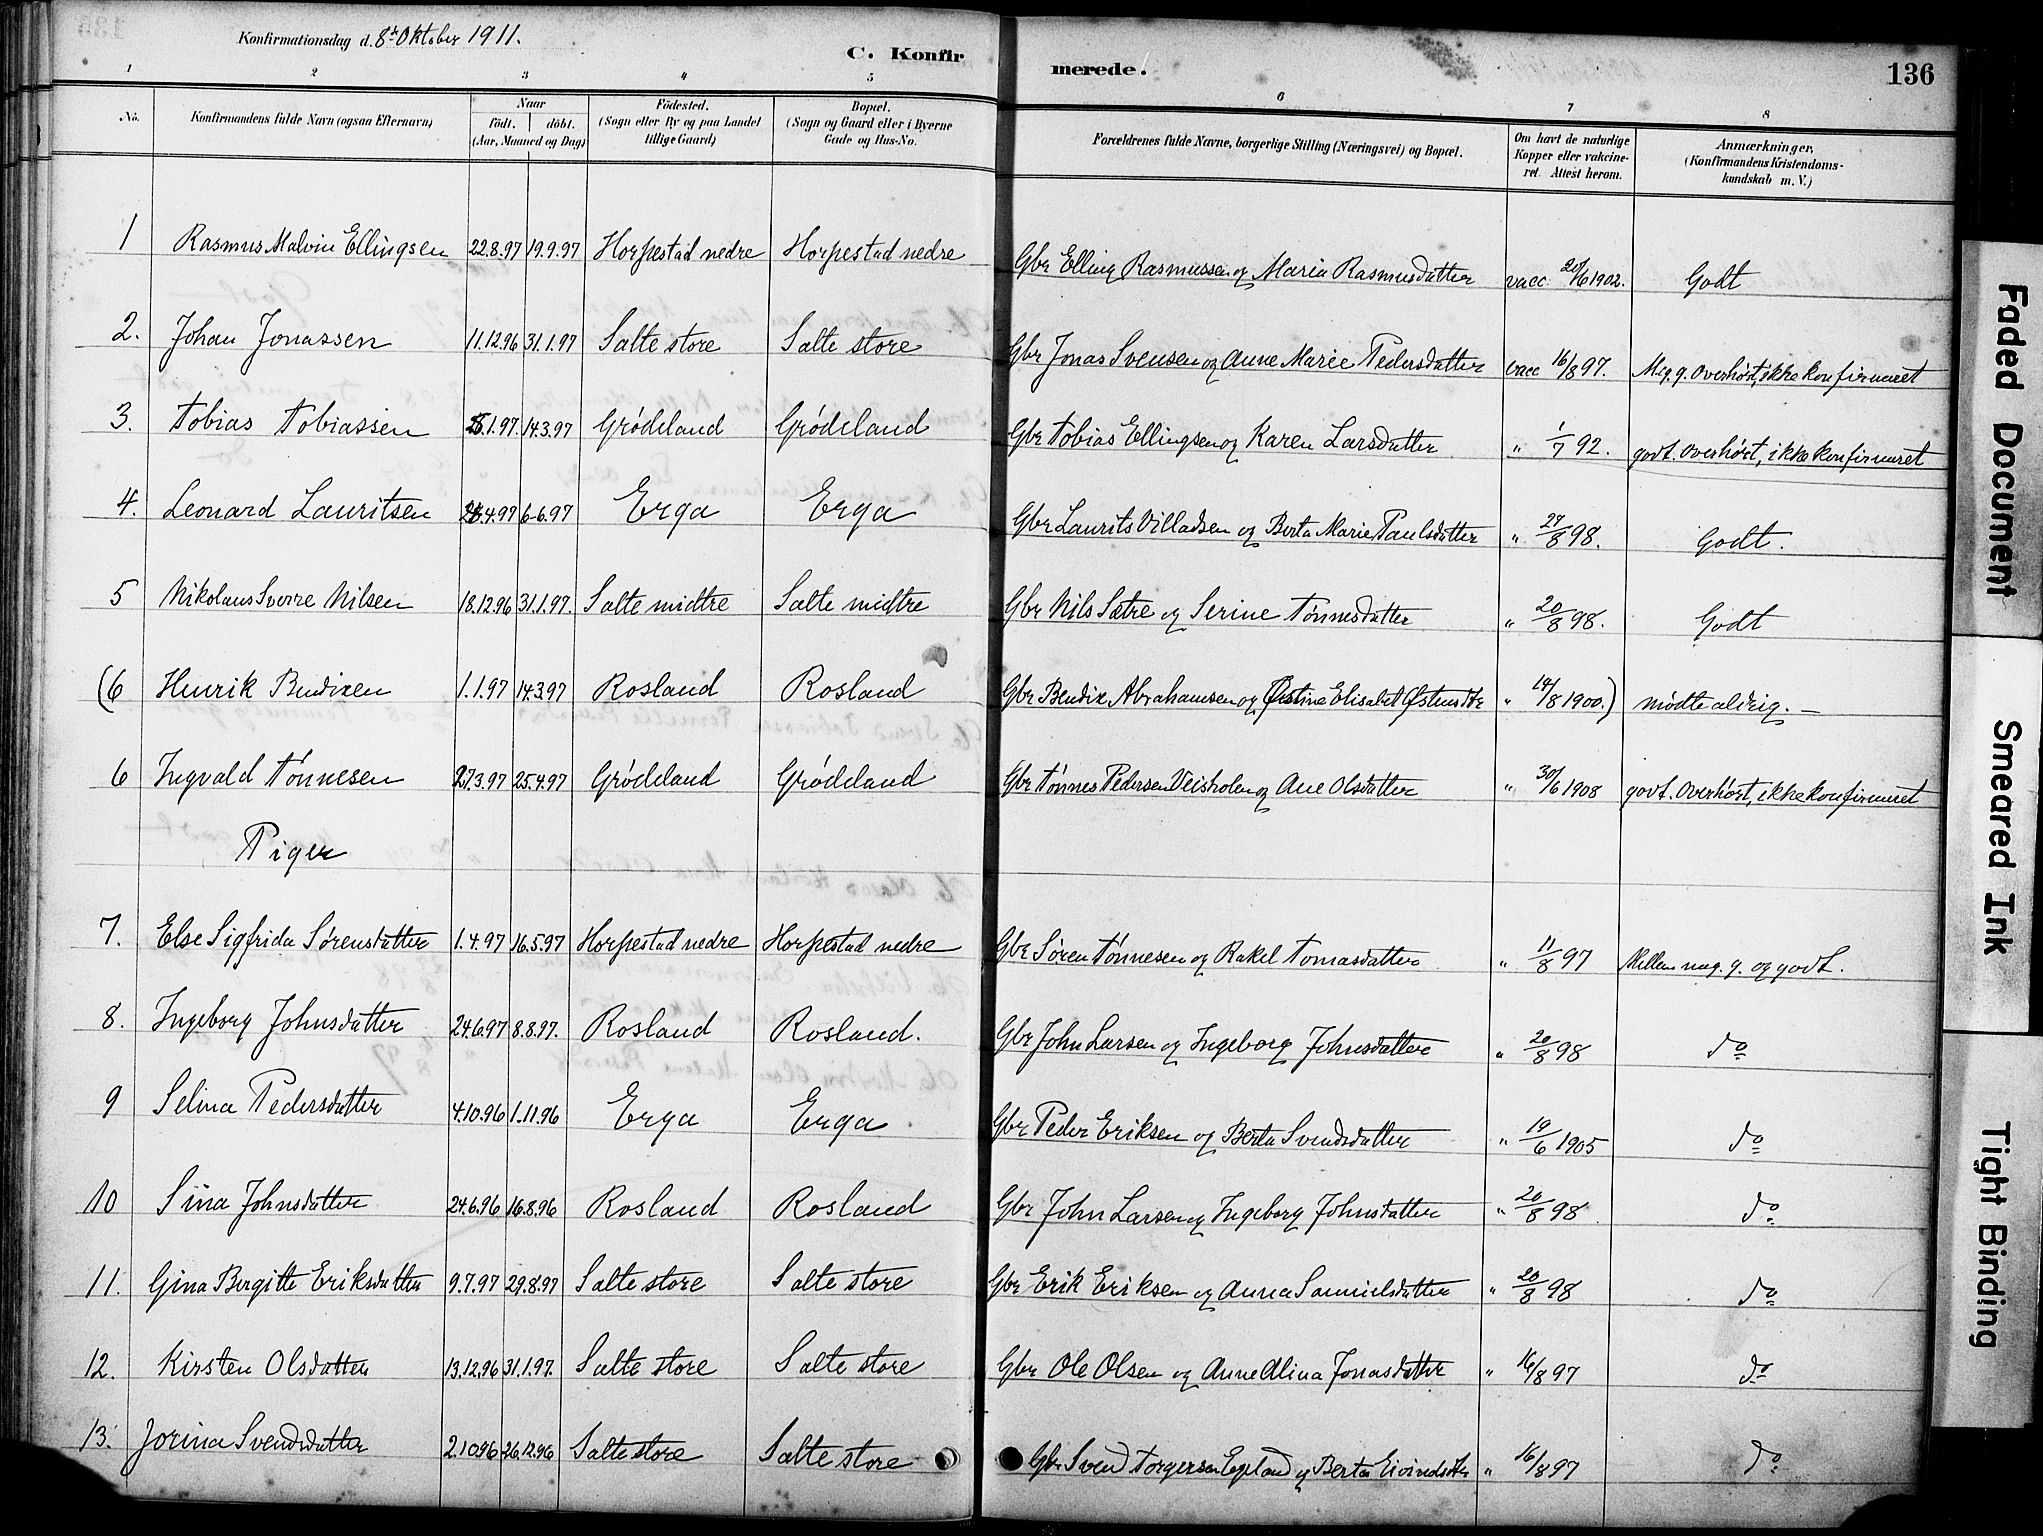 Konfirmationsdag d. 8de Oktober 1911.
C. Konfirmerede.
136
1 2 3 4 5 6 7 8
No. Konfirmandens fulde Navn (ogsaa Efternavn) Naar födt. döbt. (Aar, Maaned og Dag) Födested. (Sogn eller By og paa Landet tillige Gaard) Bopæl. (Sogn og Gaard eller i Byerne Gade og Hus-No. Forældrenes fulde Navne, borgerlige Stilling (Næringsvei) og Bopæl. Om havt de naturlige Kopper eller vakcineret. Attest herom. Anmærkninger. (Konfirmandens Kristendomskundskab m. V.)
1 Rasmus Malvin Ellingsen 22.8.97 19.9.97 Horpestad nedre Horpestad nedre Gbr Elling Rasmussen og Maria Rasmusdatter vacc. 20/6 1902. Godt
2. Johan Jonassen 11.12.96 31.1.97 Salte store Salte store Gbr Jonas Svensen og Anne Marie Pedersdatter vacc 16/8 97. Meg. g. overhørt, ikke konfirmeret
3. Tobias Tobiassen 25.1.97. 14.3.97 Grødeland Grødeland Gbr Tobias Ellingsen og Karen Larsdatter " 1/7 92. godt. overhørt, ikke konfirmeret
4. Leonard Lauritsen 4.97 6-6.97 Erga Erga Gbr Laurits Villadsen og Berta Marie Paulsdatter " 27/8 98. Godt.
5 Nikolaus Sverre Nilsen 18.12.96 31.1.97. Salte midtre Salte midtre Gbr Nils Sætre og Serine Tønnesdatter " 20/8 98. Godt
(6 Henrik Bendixen 1.1.97 14.3.97 Rosland Rosland Gbr Bendix Abrahamsen og Østine Elisabet Østensdtr " 14/8 1900.) mødte aldrig. —
6 Ingvald Tønnesen 27.3.97 25.4.97 Grødeland Grødeland Gbr Tønnes Pedersen Veisholen og Ane Olsdatter " 30/6 1908 godt. overhørt, ikke konfirmeret
Piger
7. Else Sigfrida Sørensdatter 1.4.97 16.5.97 Horpestad nedre Horpestad nedre Gbr Søren Tønnesen og Rakel Tomasdatter " 11/8 97 Mellem meg. g. og godt.
8. Ingeborg Johnsdatter 24.6.97 8.8.97. Rosland Rosland. Gbr John Larsen og Ingeborg Johnsdatter " 20/8 98 do
9 Selina Pedersdatter 4.10.96 1.11.96 Erga Erga Gbr Peder Eriksen og Berta Svendsdatter " 19/6 1905 do
10 Sina Johnsdatter 24.6.96 16.8.96 Rosland Rosland Gbr John Larsen og Ingeborg Johnsdatter " 20/8 98 do
11. Gina Bergitte Eriksdatter 9.7.97 29.8.97 Salte store Salte store Gbr Erik Eriksen og Anna Samuelsdatter " 20/8 98 do
12. Kirsten Olsdatter 13.12.96 31.1.97. Salte store Salte store Gbr Ole Olsen og Anne Alina Jonasdatter " 16/8 97 do
13. Jorina Svendsdatter 2.10.96 26.12.96 Salte store Salte store Gbr Svend Torgersen Egeland og Berta Eivindsdtr " 16/8 97 do
Faded Document
Smeared Ink
Tight Binding